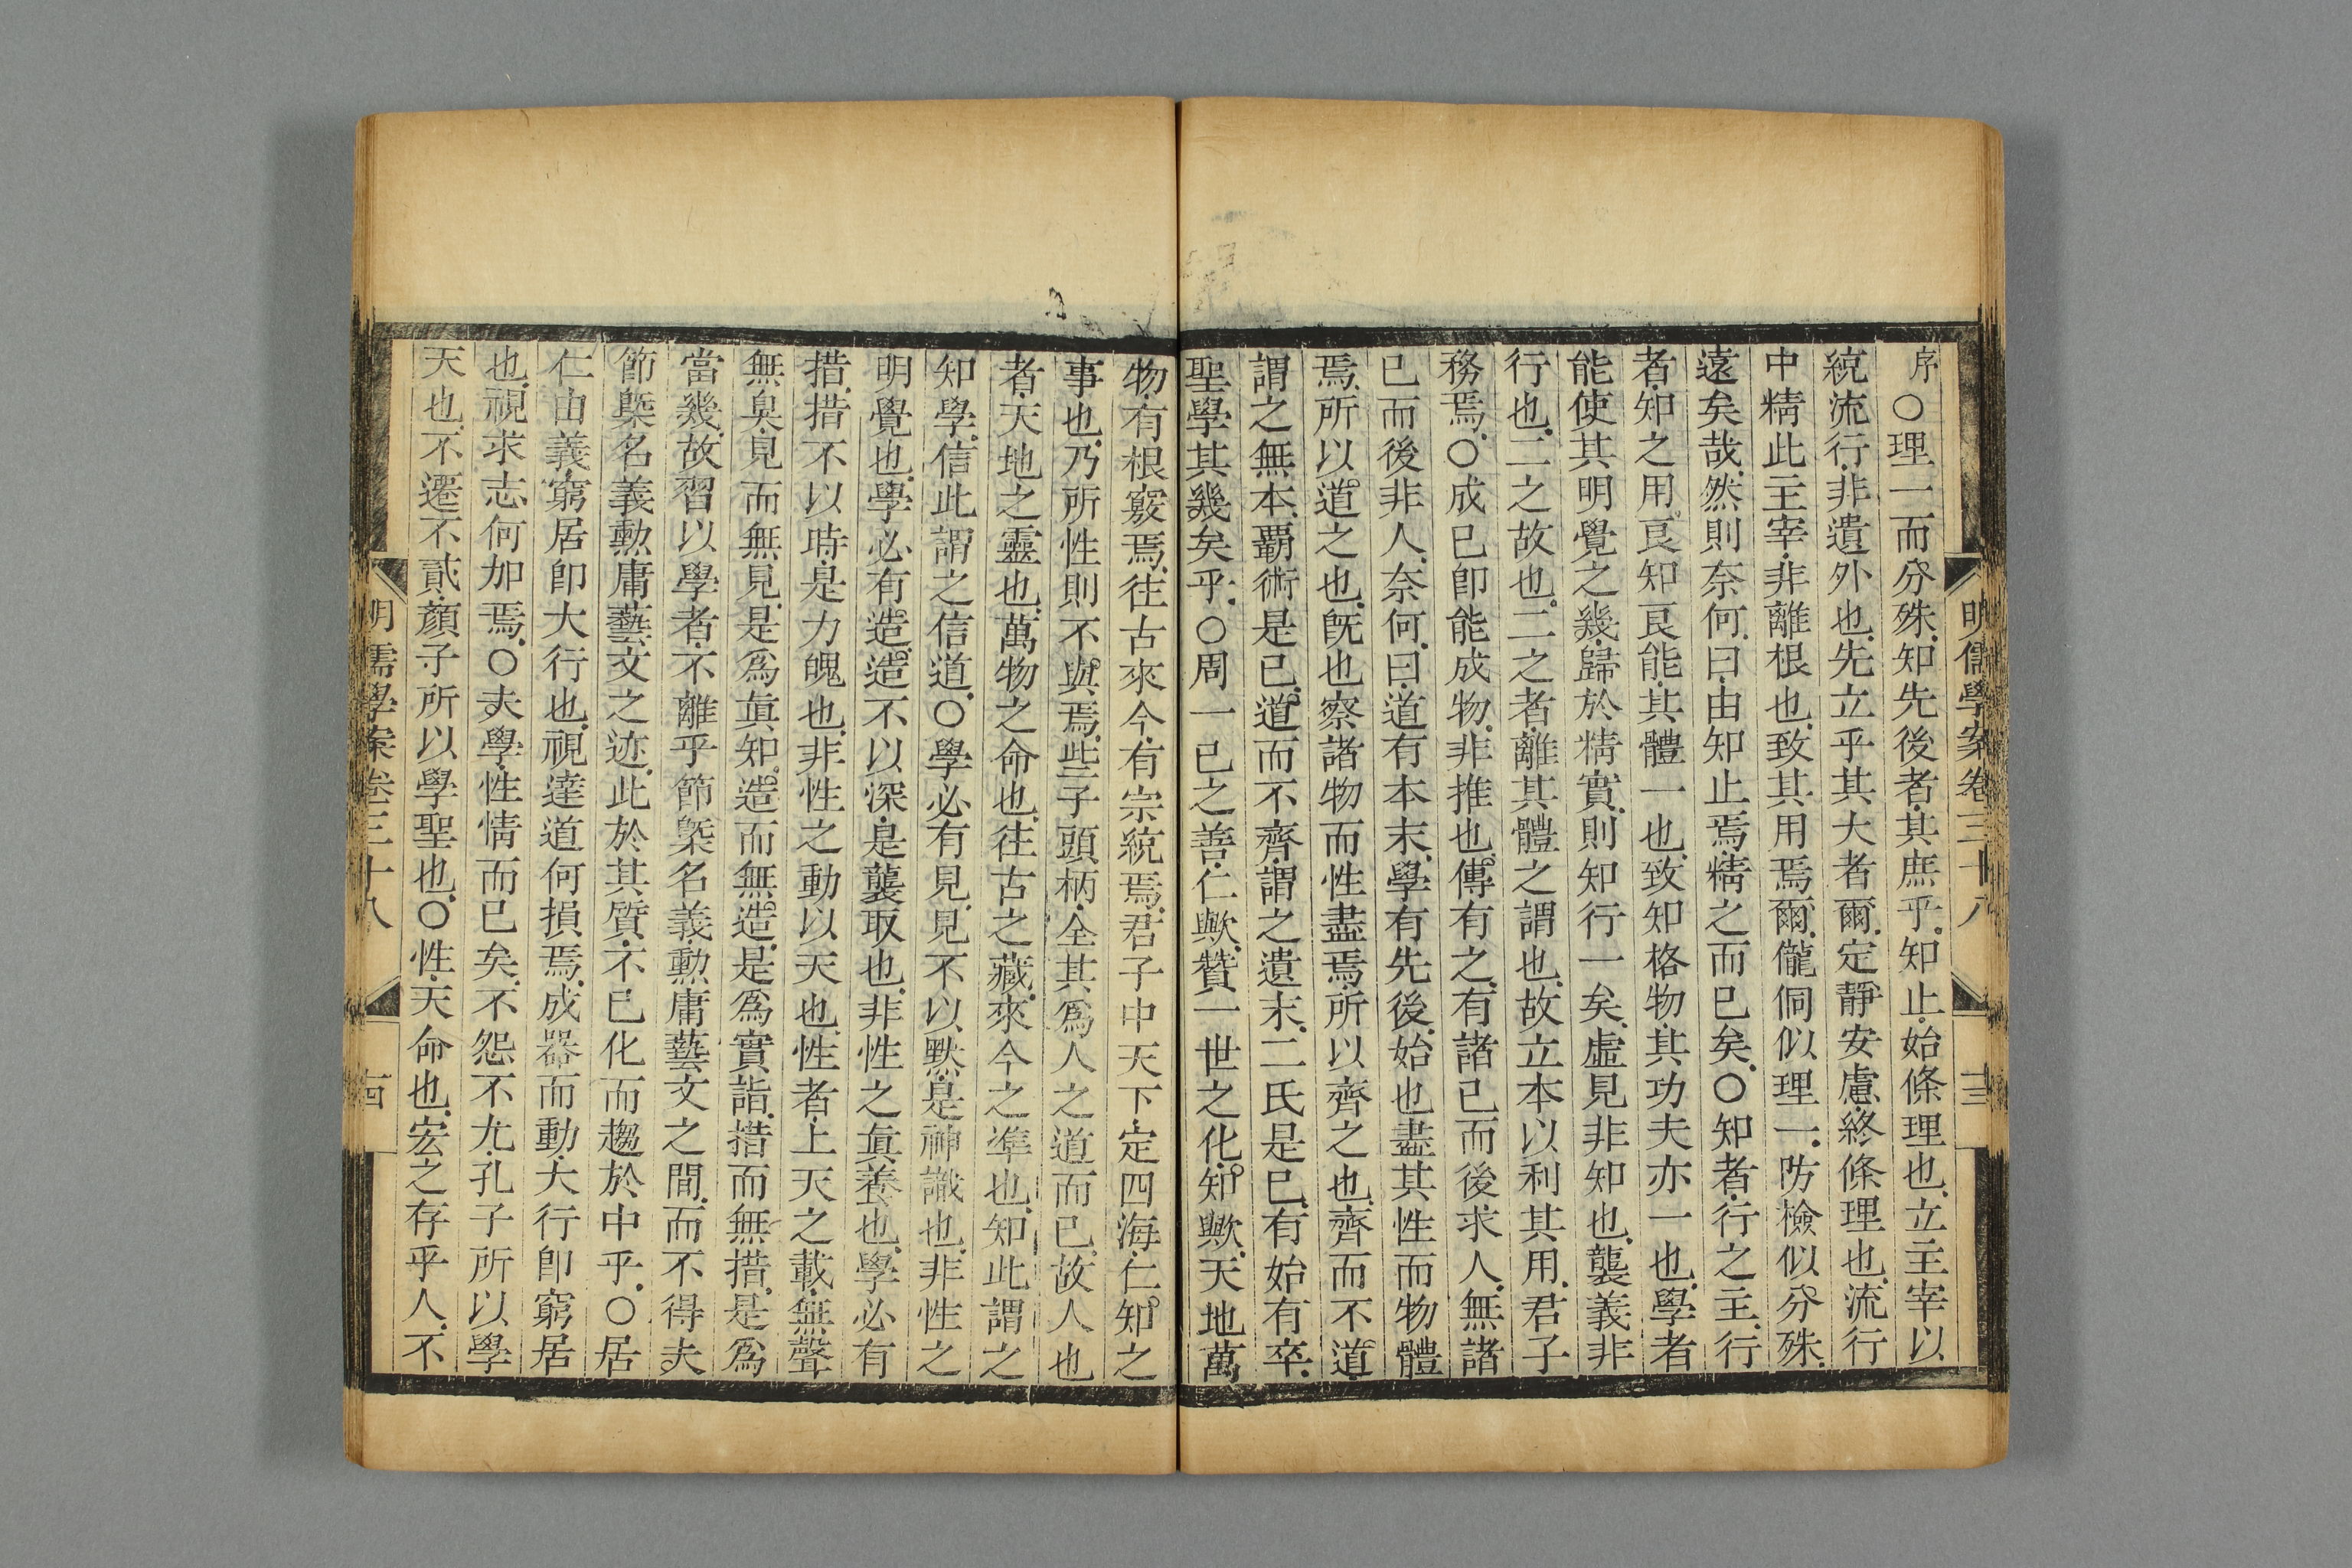 明儒學案卷三十八
十三
序○理一而分殊知先後者其庶乎知止始條理也立主宰以
統流行非遺外也先立乎其大者爾定靜安慮終條理也流行
中精此主宰非離根也致其用焉爾儱侗似理一防檢似分殊
遠矣哉然則奈何曰由知止焉精之而已矣○知者行之主行
者知之用良知良能其體一也致知格物其功夫亦一也學者
能使其明覺之幾歸於精實則知行一矣虛見非知也襲義非
行也二之故也二之者離其體之謂也故立本以利其用君子
務焉○成己卽能成物非推也傳有之有諸己而後求人無諸
己而後非人奈何曰道有本末學有先後始也盡其性而物體
焉所以道之也旣也察諸物而性盡焉所以齊之也齊而不道
謂之無本覇術是已道而不齊謂之遺末二氏是已有始有卒
聖學其幾矣乎○周一己之善仁歟贊一世之化知歟天地萬
物有根竅焉往古來今有宗統焉君子中天下定四海仁知之
事也乃所性則不與焉些子頭柄全其爲人之道而已故人也
者天地之靈也萬物之命也往古之藏來今之準也知此謂之
知學信此謂之信道○學必有見見不以默是神識也非性之
明覺也學必有造造不以深是襲取也非性之眞養也學必有
措措不以時是力魄也非性之動以天也性者上天之載無聲
無臭見而無見是爲眞知造而無造是爲實詣措而無措是爲
當幾故習以學者不離乎節槩名義勲庸藝文之間而不得夫
節槩名義勲庸藝文之迹此於其質不已化而趨於中乎○居
仁由義窮居卽大行也視達道何損焉成器而動大行卽窮居
也視求志何加焉○夫學性情而已矣不怨不尤孔子所以學
天也不遷不貳顏子所以學聖也○性天命也宏之存乎人不
明儒學案卷三十八
十四